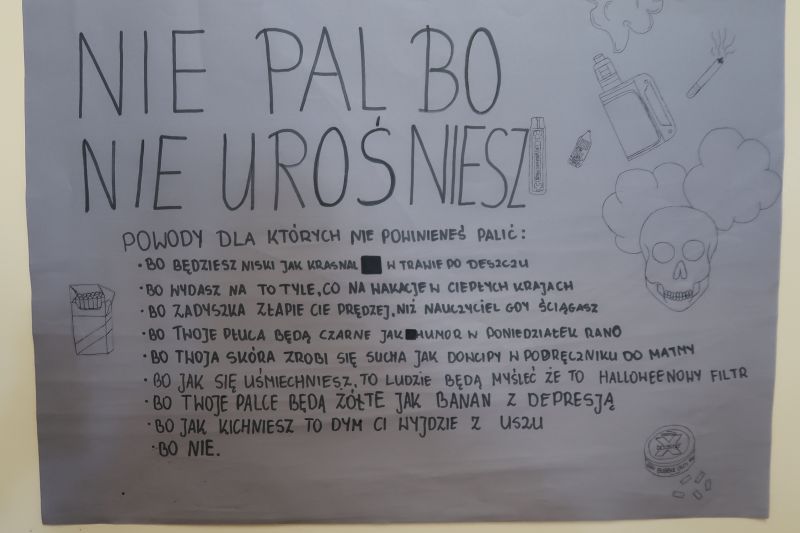 NIE PAL BO
NIE UROŚNIESZ
POWODY DLA KTÓRYCH NIE POWINIENEŚ PALIĆ:
• BO BĘDZIESZ NISKI JAK KRASNAL W TRAWIE PO DESZCZU
• BO WYDASZ NA TO TYLE, CO NA WAKACJE W CIEPŁYCH KRAJACH
• BO ZADYSZKA ZŁAPIE CIE PRĘDZEJ, NIŻ NAUCZYCIEL GDY ŚCIĄGASZ
• BO TWOJE PŁUCA BĘDĄ CZARNE JAK HUMOR W PONIEDZIAŁEK RANO
• BO TWOJA SKÓRA ZROBI SIĘ SUCHA JAK DOWCIPY W PODRĘCZNIKU DO MATMY
• BO JAK SIĘ UŚMIECHNIESZ, TO LUDZIE BĘDĄ MYŚLEĆ ŻE TO HALLOWEENOWY FILTR
• BO TWOJE PALCE BĘDĄ ŻÓŁTE JAK BANAN Z DEPRESJĄ
• BO JAK KICHNIESZ TO DYM CI WYJDZIE Z USZU
• BO NIE.